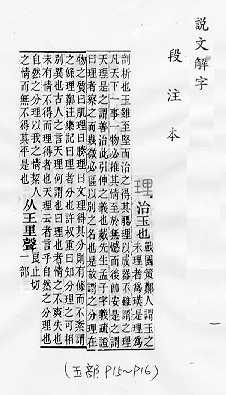 說文解字
段注本
理 治玉也 戰國策鄭人謂玉之
未理者爲璞是理爲
剖析也玉雖至堅而治之得其䚡理以成器不難謂之理
凡天下一事一物必推其情至於無憾而後卽安是之謂
天理是之謂善治此引伸之義也戴先生孟子字義疏證
曰理者察之而幾微必區以別之名也是故謂之分理在
物之質曰肌理曰腠理曰文理得其分則有條而不紊謂
之條理鄭注樂記曰理者分也許叔重曰知分理之可相
別異也古人之言天理何謂也曰理也者情之不爽失也
未有情不得而理得者也天理云者言乎自然之分理也
自然之分理以我之情絜人
之情而無不得其平是也
从王里聲 良止切
一部
一
(玉部 P15~P16)